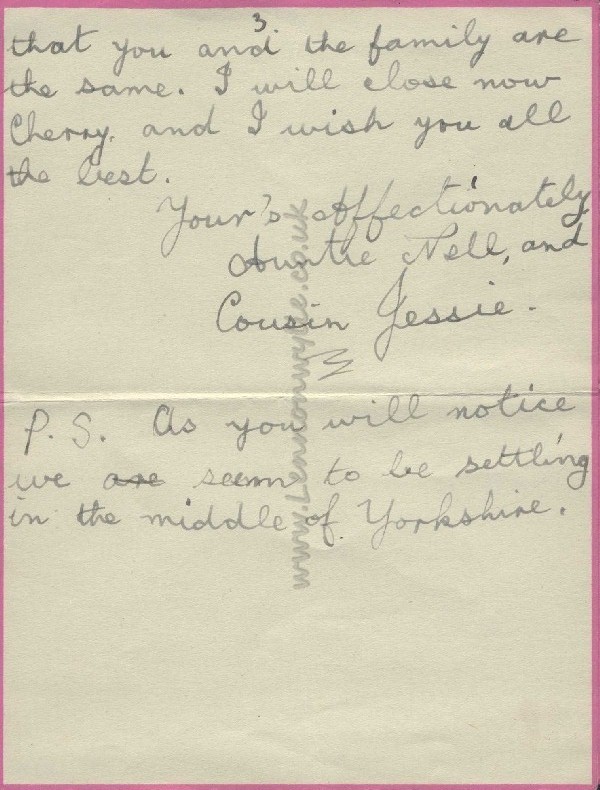 3
that you and the family are
the same. I will close now
Cherry. and I wish you all
the best.
Your's Affectionately
Auntie Nell, and
Cousin Jessie.
P.S. As you will notice
we are seem to be settling
in the middle of Yorkshire.
www.Lennonwylie.co.uk